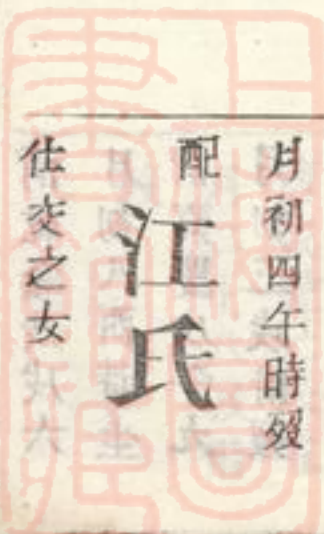 月初四午時歿
配
江氏
仕交之女